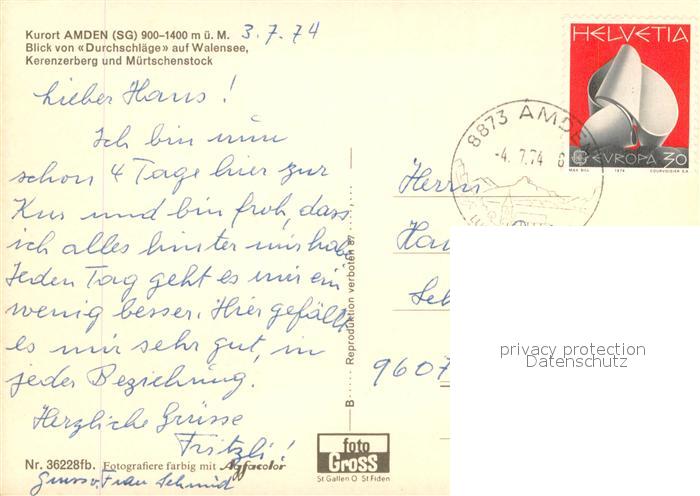 Kurort AMDEN (SG) 900–1400 m ü. M. 3.7.74
Blick von «Durchschläge» auf Walensee,
Kerenzerberg und Mürtschenstock
Lieber Hans!
Ich bin nun
schon 4 Tage hier zur
Kur und bin froh, dass
ich alles hinter mir habe
Jeden Tag geht es mir ein
wenig besser. Hier gefällt
es mir sehr gut, in
jeder Beziehung.
Herzliche Grüsse
Fritzli!
Gruss v. Frau Schmid
Nr. 36228fb. Fotografiere farbig mit Agfacolor
B
Reproduktion verboten 87
foto
GROSS
St Gallen O St Fiden
HELVETIA
EUROPA 30
MAX BILL 1974 COURVOISIER S.A.
8873 AMDEN
-4.7.74
Herrn
9607
privacy protection
Datenschutz